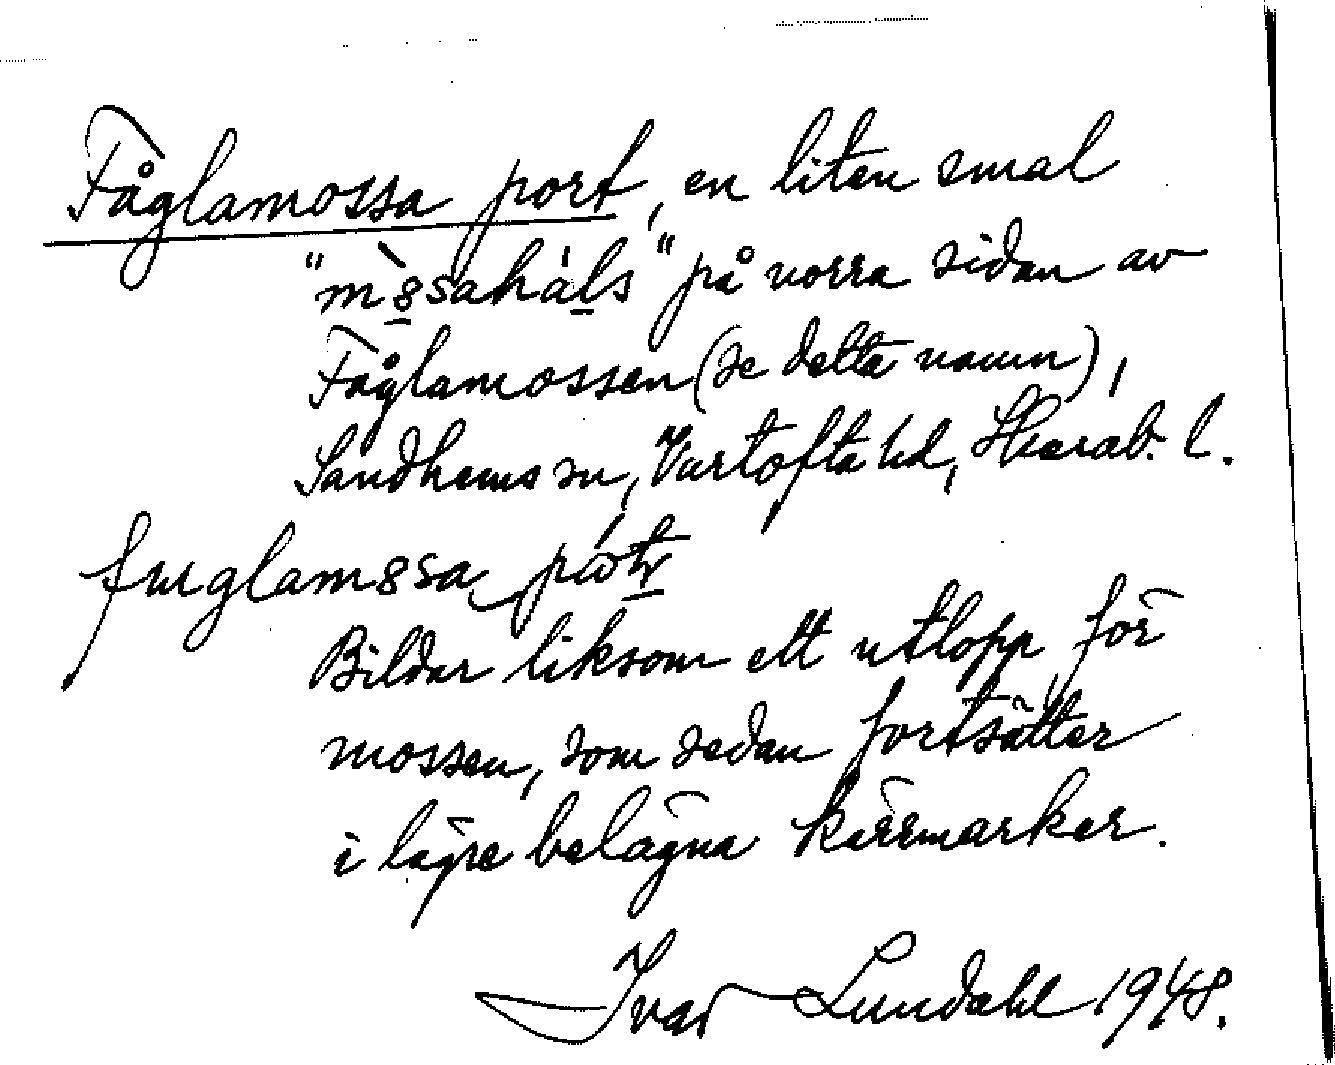 Fåglamossa port, en liten smal
"mòssahals" på norra sidan av
Fåglamossen (se detta namn),
Sandhems sn, Vartofta hd, Skarab. l.
Bildar liksom ett utlopp för
mossen, som sedan fortsätter
i lägre belägna kärrmarker.
Ivar Lundahl 1948.